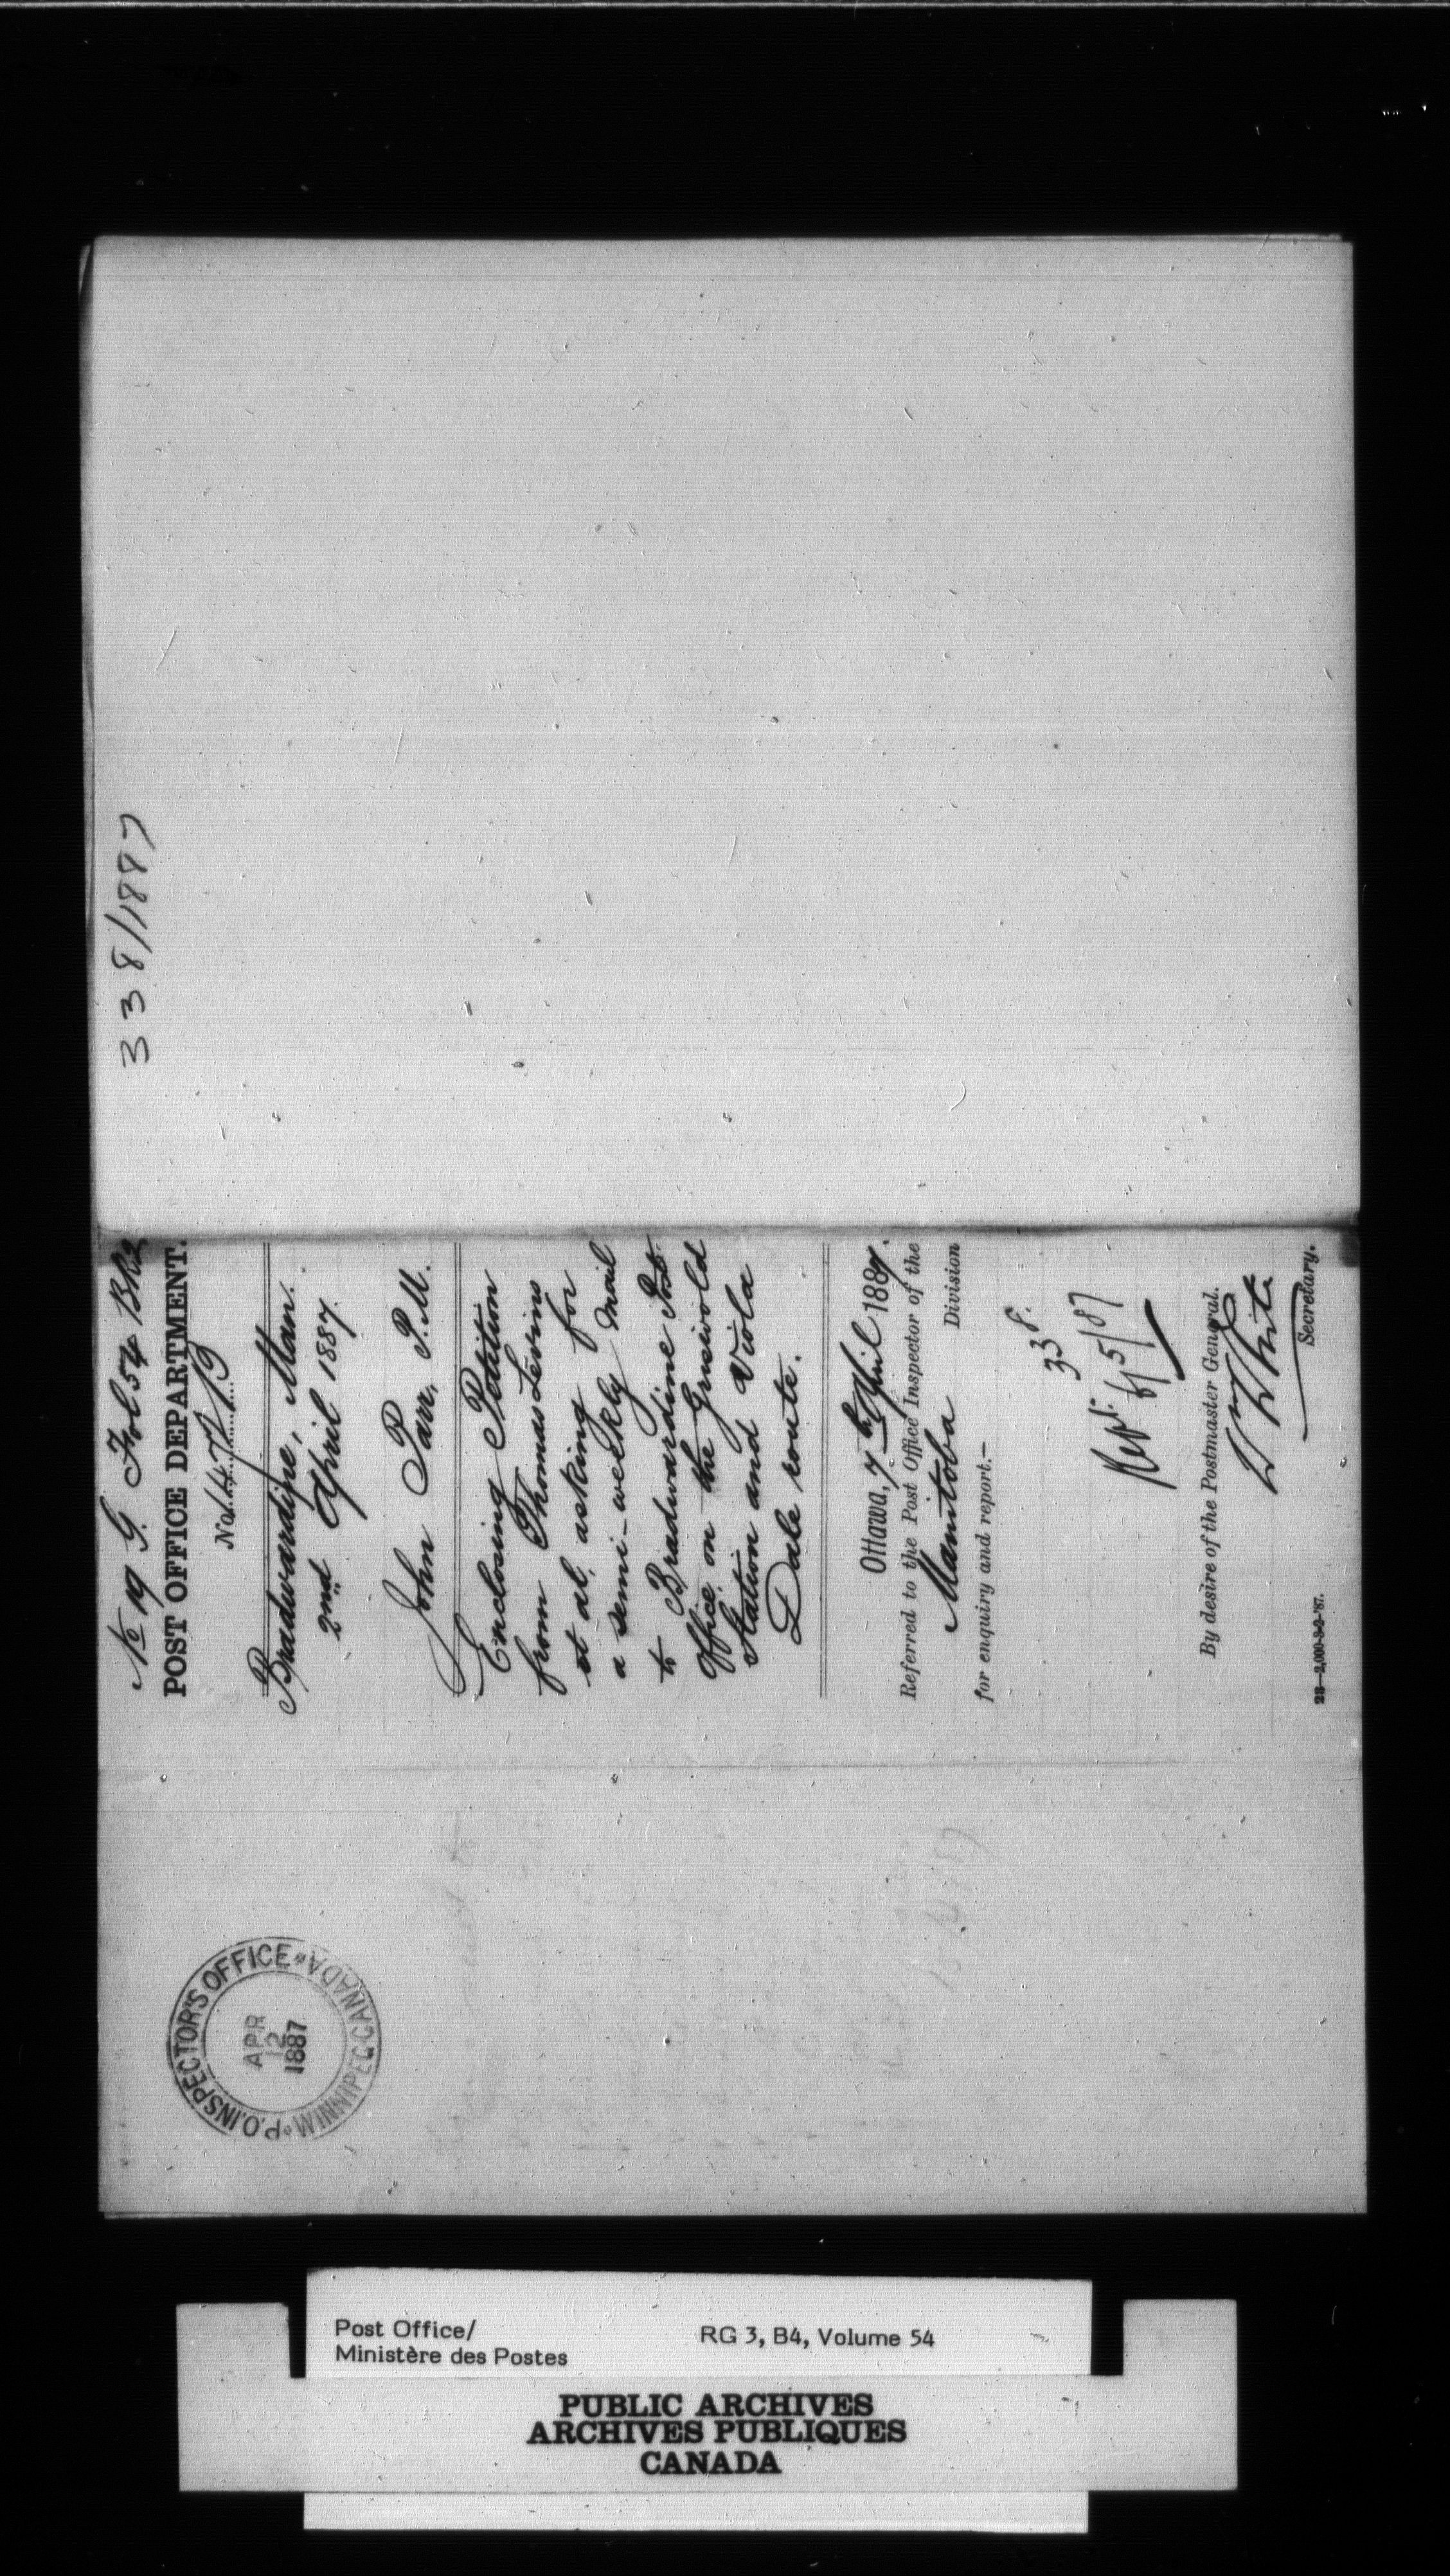 338/1887
No 19 G. Fol 54 Bk2
POST OFFICE DEPARTMENT.
No.
Bradwardine, Man.
2nd April 1887.
John Parr, P.M.
Enclosing Petition
from Thomas Levins
et al, asking for
a semi-weekly mail
to Bradwardine Post
Office, on the Griswold
Station and Viola
Dale route.
Ottawa, 7th April 1887.
Referred to the Post Office Inspector of the
Manitoba Division
for enquiry and report.—
338.
Rept. 6/5/87
By desire of the Postmaster General.
W White
Secretary.
28—2,000-8-3-'87.
P.O. INSPECTOR'S OFFICE
APR
12
1887
WINNIPEG-CANADA
Post Office/
Ministère des Postes
RG 3, B4, Volume 54
PUBLIC ARCHIVES
ARCHIVES PUBLIQUES
CANADA